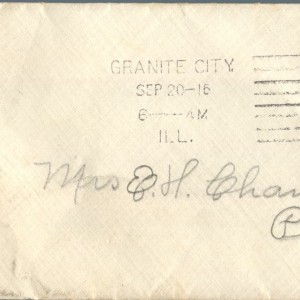 GRANITE CITY.
SEP 20-16
6 — AM
ILL.
Mrs E. H. Chan